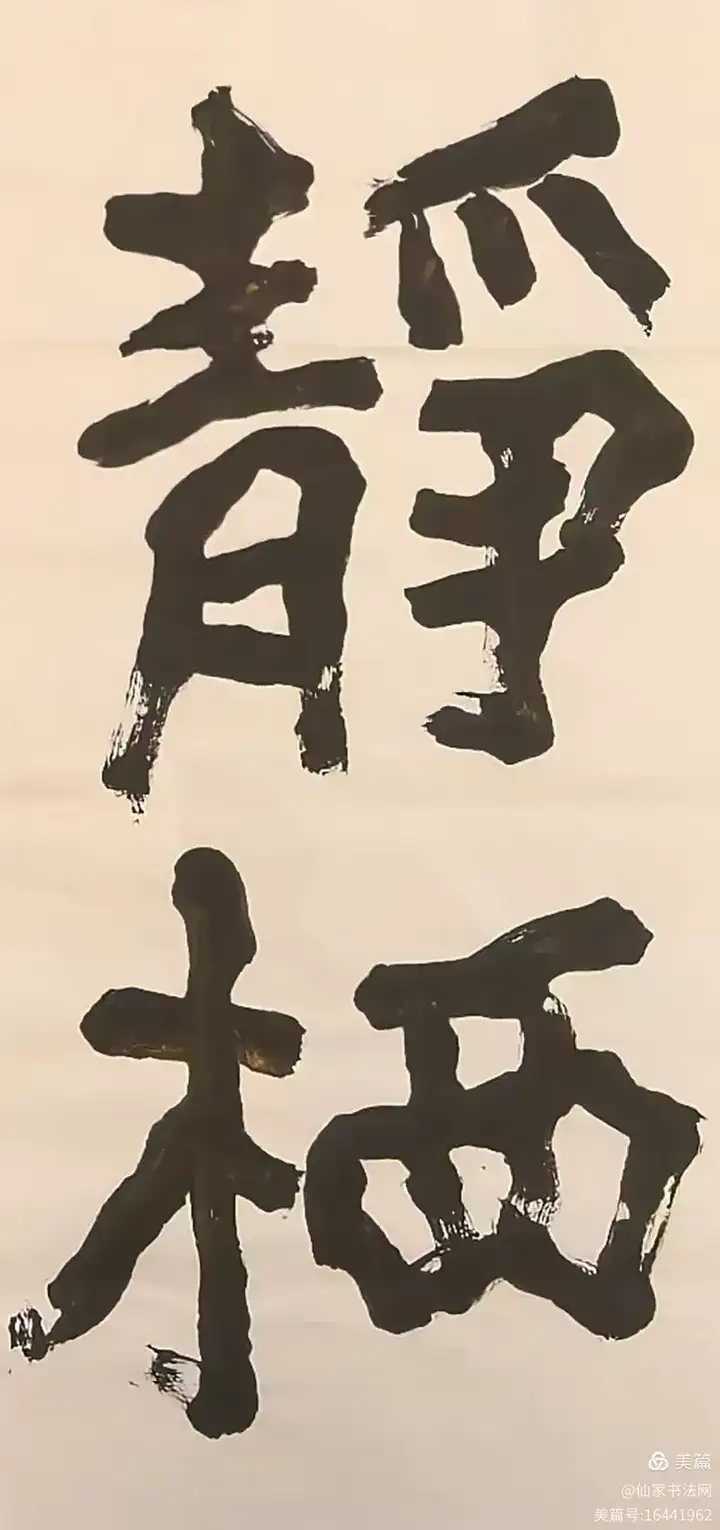 靜
栖
美篇
@仙家书法网
美篇号:16441962